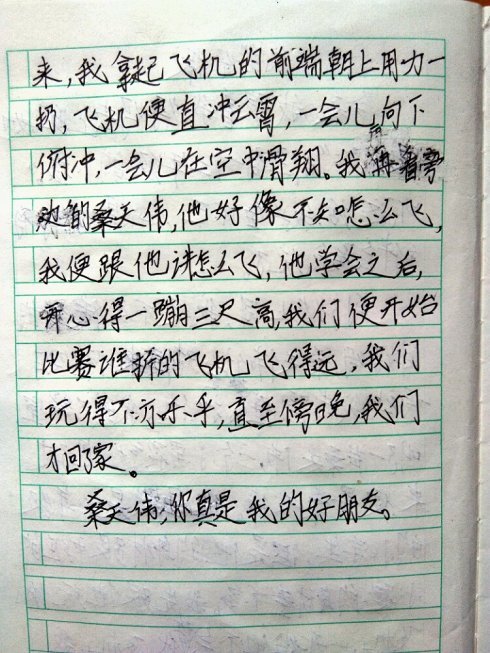 来，我拿起飞机的前端朝上用力一
扔，飞机便直冲云霄，一会儿向下
俯冲，一会儿在空中滑翔。我再看旁
边的桑天伟，他好像不知怎么飞，
我便跟他讲怎么飞，他学会之后，
开心得一蹦三尺高，我们便开始
比赛谁折的飞机飞得远，我们
玩得不亦乐乎，直至傍晚，我们
才回家。
桑天伟，你真是我的好朋友。